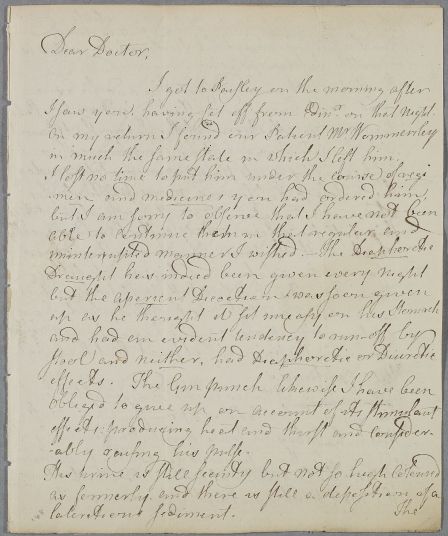 Dear Doctor,
I got to Paisley on the morning after
I saw you, having set off from Edinr. on that night.
On my return I found our Patient Mr Wammersley
in much the same state in which I left him.
I lost no time to put him under the course of regi
men and medicines you had ordered him,
but I am sorry to observe that I have not been
able to continue them in that regular and
uninterrupted manner I wished. The Diaphoretic
Draught has indeed been given every night
but the aperient Decoction was soon given
up as he thought it sit uneasy on his Stomach
and had an evident tendency to run off by
Stool and neither had Diaphoretic or Diuretic
effects. The Gin punch likewise I have been
obliged to give up on account of its stimulant
effects; producing heat and thirst and consider-
-ably raising his pulse.
His urine is still scanty but not so high coloured
as formerly and there is still a deposition of a
lateritious sediment. The